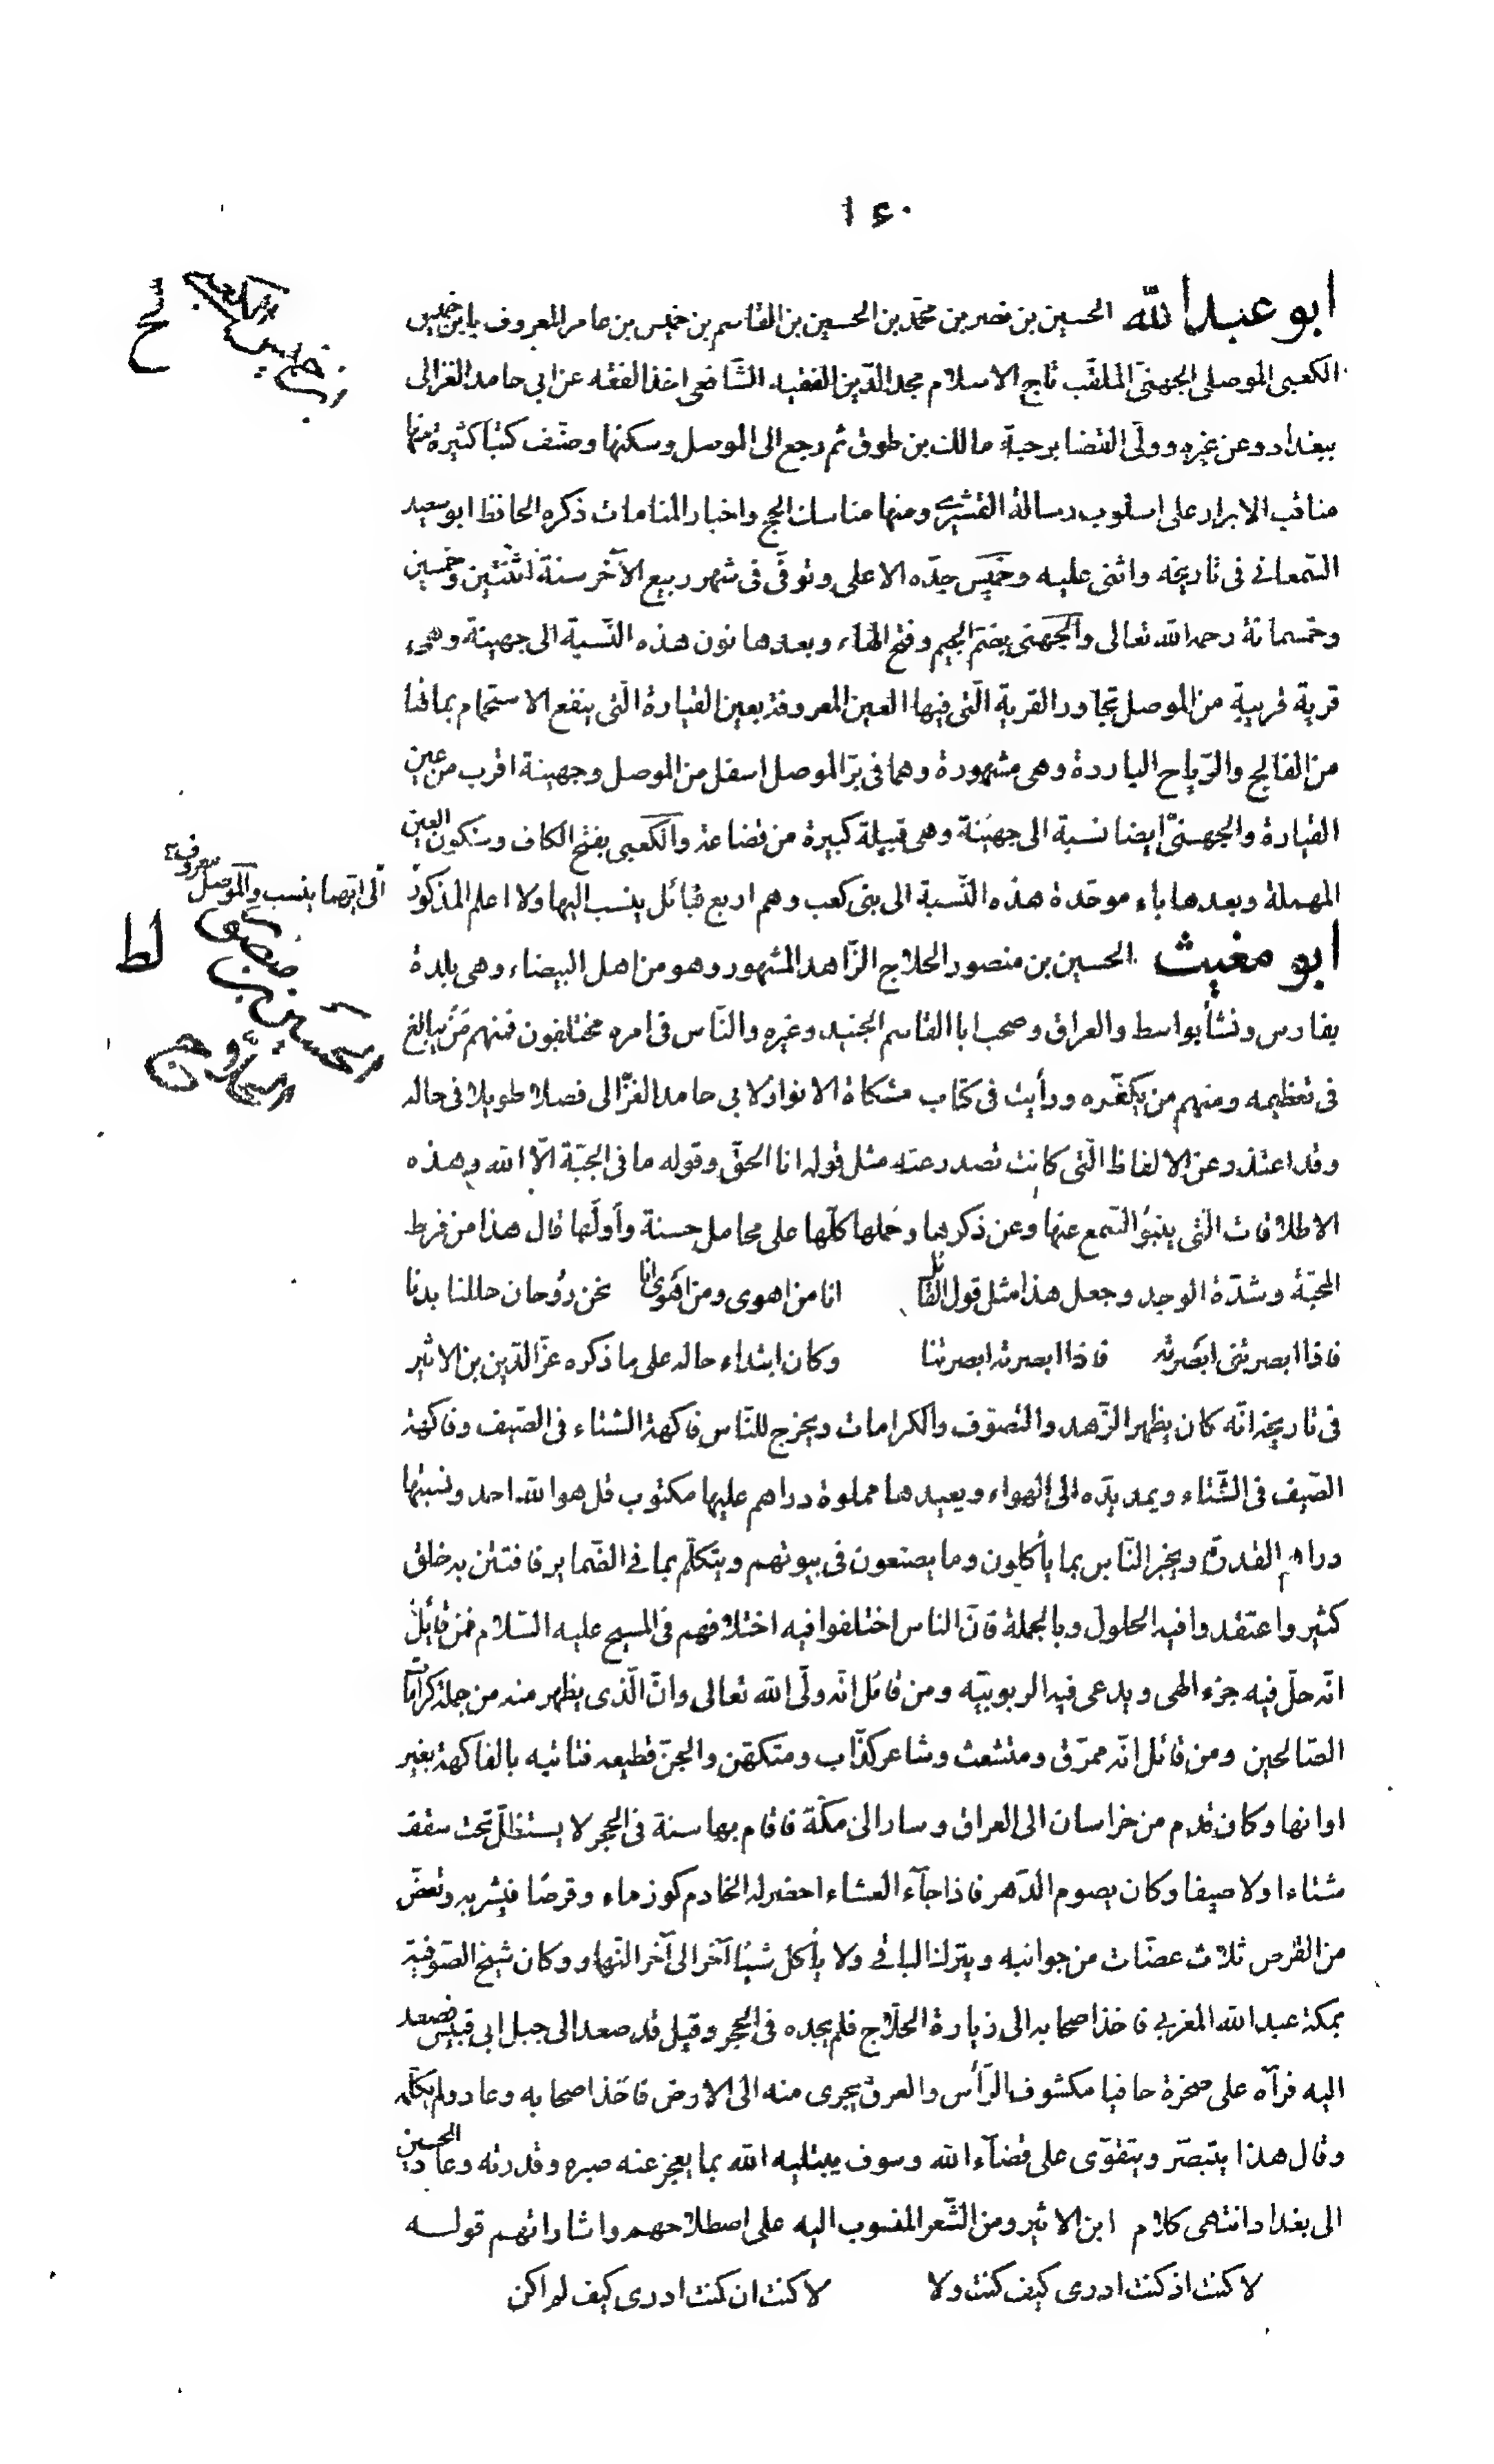 ١٤٠
ابو عبد الله الحسين بن نصر بن محمّد بن الحسين بن القاسم بن خميس بن عامر المعروف بابن خميس
ابن خميس الكعبى
لح
الكعبى الموصلى الجهنىّ الملقّب تاج الاسلام مجد الدّين الفقيه الشّافعى اخذ الفقه عن ابى حامد الغزالى
ببغداد وعن غيره وولّى القضا برحبة مالك بن طوق ثم رجع الى الموصل وسكنها وصنّف كتبا كثيرة منها
مناقب الابرار على اسلوب رسالة القشيرى ومنها مناسك الحج واخبار المنامات ذكره الحافظ ابو سعيد
السّمعانى فى تاريخه واثنى عليه وخميس جدّه الاعلى وتوفّى فى شهر ربيع الآخر سنة اثنتين وخمسين
وخمسمائة رحمه الله تعالى والجهنى بضمّ الجيم وفتح الهاء وبعدها نون هذه النّسبة الى جهينة وهى
قرية قريبة من الموصل تجاور القرية الّتى فيها العين المعروفة بعين القيارة الّتى ينفع الاستحمام بمائها
من الفالج والرّياح الباردة وهى مشهورة وهما فى برّ الموصل اسفل من الموصل وجهينة اقرب من عين
القيارة والجهنىّ ايضا نسبة الى جهينة وهى قبيلة كبيرة من قضاعة والكعبى بفتح الكاف وسكون العين
المهملة وبعدها باء موحّدة هذه النّسبة الى بنى كعب وهم اربع قبائل ينسب اليها ولا اعلم المذكور
الى ايّهما ينسب والموصل معروف
ابو مغيث الحسين بن منصور الحلاج الزّاهد المشهور وهو من اهل البيضاء وهى بلدة
الحسين بن منصور الحلّاج
لط
بفارس ونشأ بواسط والعراق وصحب ابا القاسم الجنيد وغيره والنّاس فى امره مختلفون فمنهم مَن يبالغ
فى تعظيمه ومنهم من يكفّره ورأيت فى كتاب مشكاة الانوار لابى حامد الغزّالى فصلا طويلا فى حاله
وقد اعتذر عن الالفاظ الّتى كانت تصدر عنه مثل قوله انا الحقّ وقوله ما فى الجبّة الّا الله وهذه
الاطلاقات الّتى ينبو السّمع عنها وعن ذكرها وحملها كلّها على محامل حسنة وأولّها قال هذا من فرط
المحبّة وشدّة الوجد وجعل هذا مثل قول القائل انا من اهوى ومن اهوى انا نحن روُحان حللنا بدنا
فاذا ابصرتنى ابصرته فاذا ابصرته ابصرتنا وكان ابتداء حاله على ما ذكره عزّ الدّين بن الاثير
فى تاريخه انّه كان يظهر الزّهد والتصوّف والكرامات ويخرج للنّاس فاكهة الشتاء فى الصّيف وفاكهة
الصّيف فى الشّتاء ويمد يدّه الى الهواء ويعيدها مملوة دراهم عليها مكتوب قل هو الله احد ونسبتها
دراهم القدرة ويخبر النّاس بما يأكلون وما يصنعون فى بيوتهم ويتكلّم بما فى الضّماير فافتتن به خلق
كثير واعتقدوا فيه الحلول وبالجملة فانّ الناس اختلفوا فيه اختلافهم فى المسيح عليه السّلام فمن قائل
انّه حلّ فيه جزء الهى ويدعى فيه الربوبيّه ومن قائل انّه ولّى الله تعالى وانّ الّذى يظهر منه من جملة كرامات
الصّالحين ومن قائل انّه ممرّق ومتشعث وشاعر كذّاب ومتكهّن والجنّ تطيعه فتاتيه بالفاكهة بغير
اوانها وكان قدم من خراسان الى العراق وسار الى مكّة فاقام بها سنة فى الحجر لا يستظلّ تحت سقف
شتاءا ولا صيفا وكان يصوم الدّهر فاذا جآء العشاء احضر له الخادم كوز ماء وقرصًا فيشربه وتعضّ
من القرص ثلاث عضّات من جوانبه ويترك الباقى ولا يأكل شيئا آخر الى آخر النّهار وكان شيخ الصّوفيّة
بمكّة عبد الله المغربى فاخذ اصحابه الى زيارة الحلّاج فلم يجده فى الحجر وقيل قد صعد الى جبل ابى قبيس فصعد
اليه فرآه على صخرة حافيا مكشوف الرّأس والعرق يجرى منه الى الارض فاخذ اصحابه وعاد ولم يكلّمه
وقال هذا يتبصّر ويتقوّى على قضآء الله وسوف يبتليه الله بما يعجز عنه صبره وقدرته وعاد الحسين
الى بغداد انتهى كلام ابن الاثير ومن الشّعر المنسوب اليه على اصطلاحهم واشاراتهم قولـه
لا كنت اذ كنت ادرى كيف كنت ولا لا كنت ان كنت ادرى كيف لم اكن